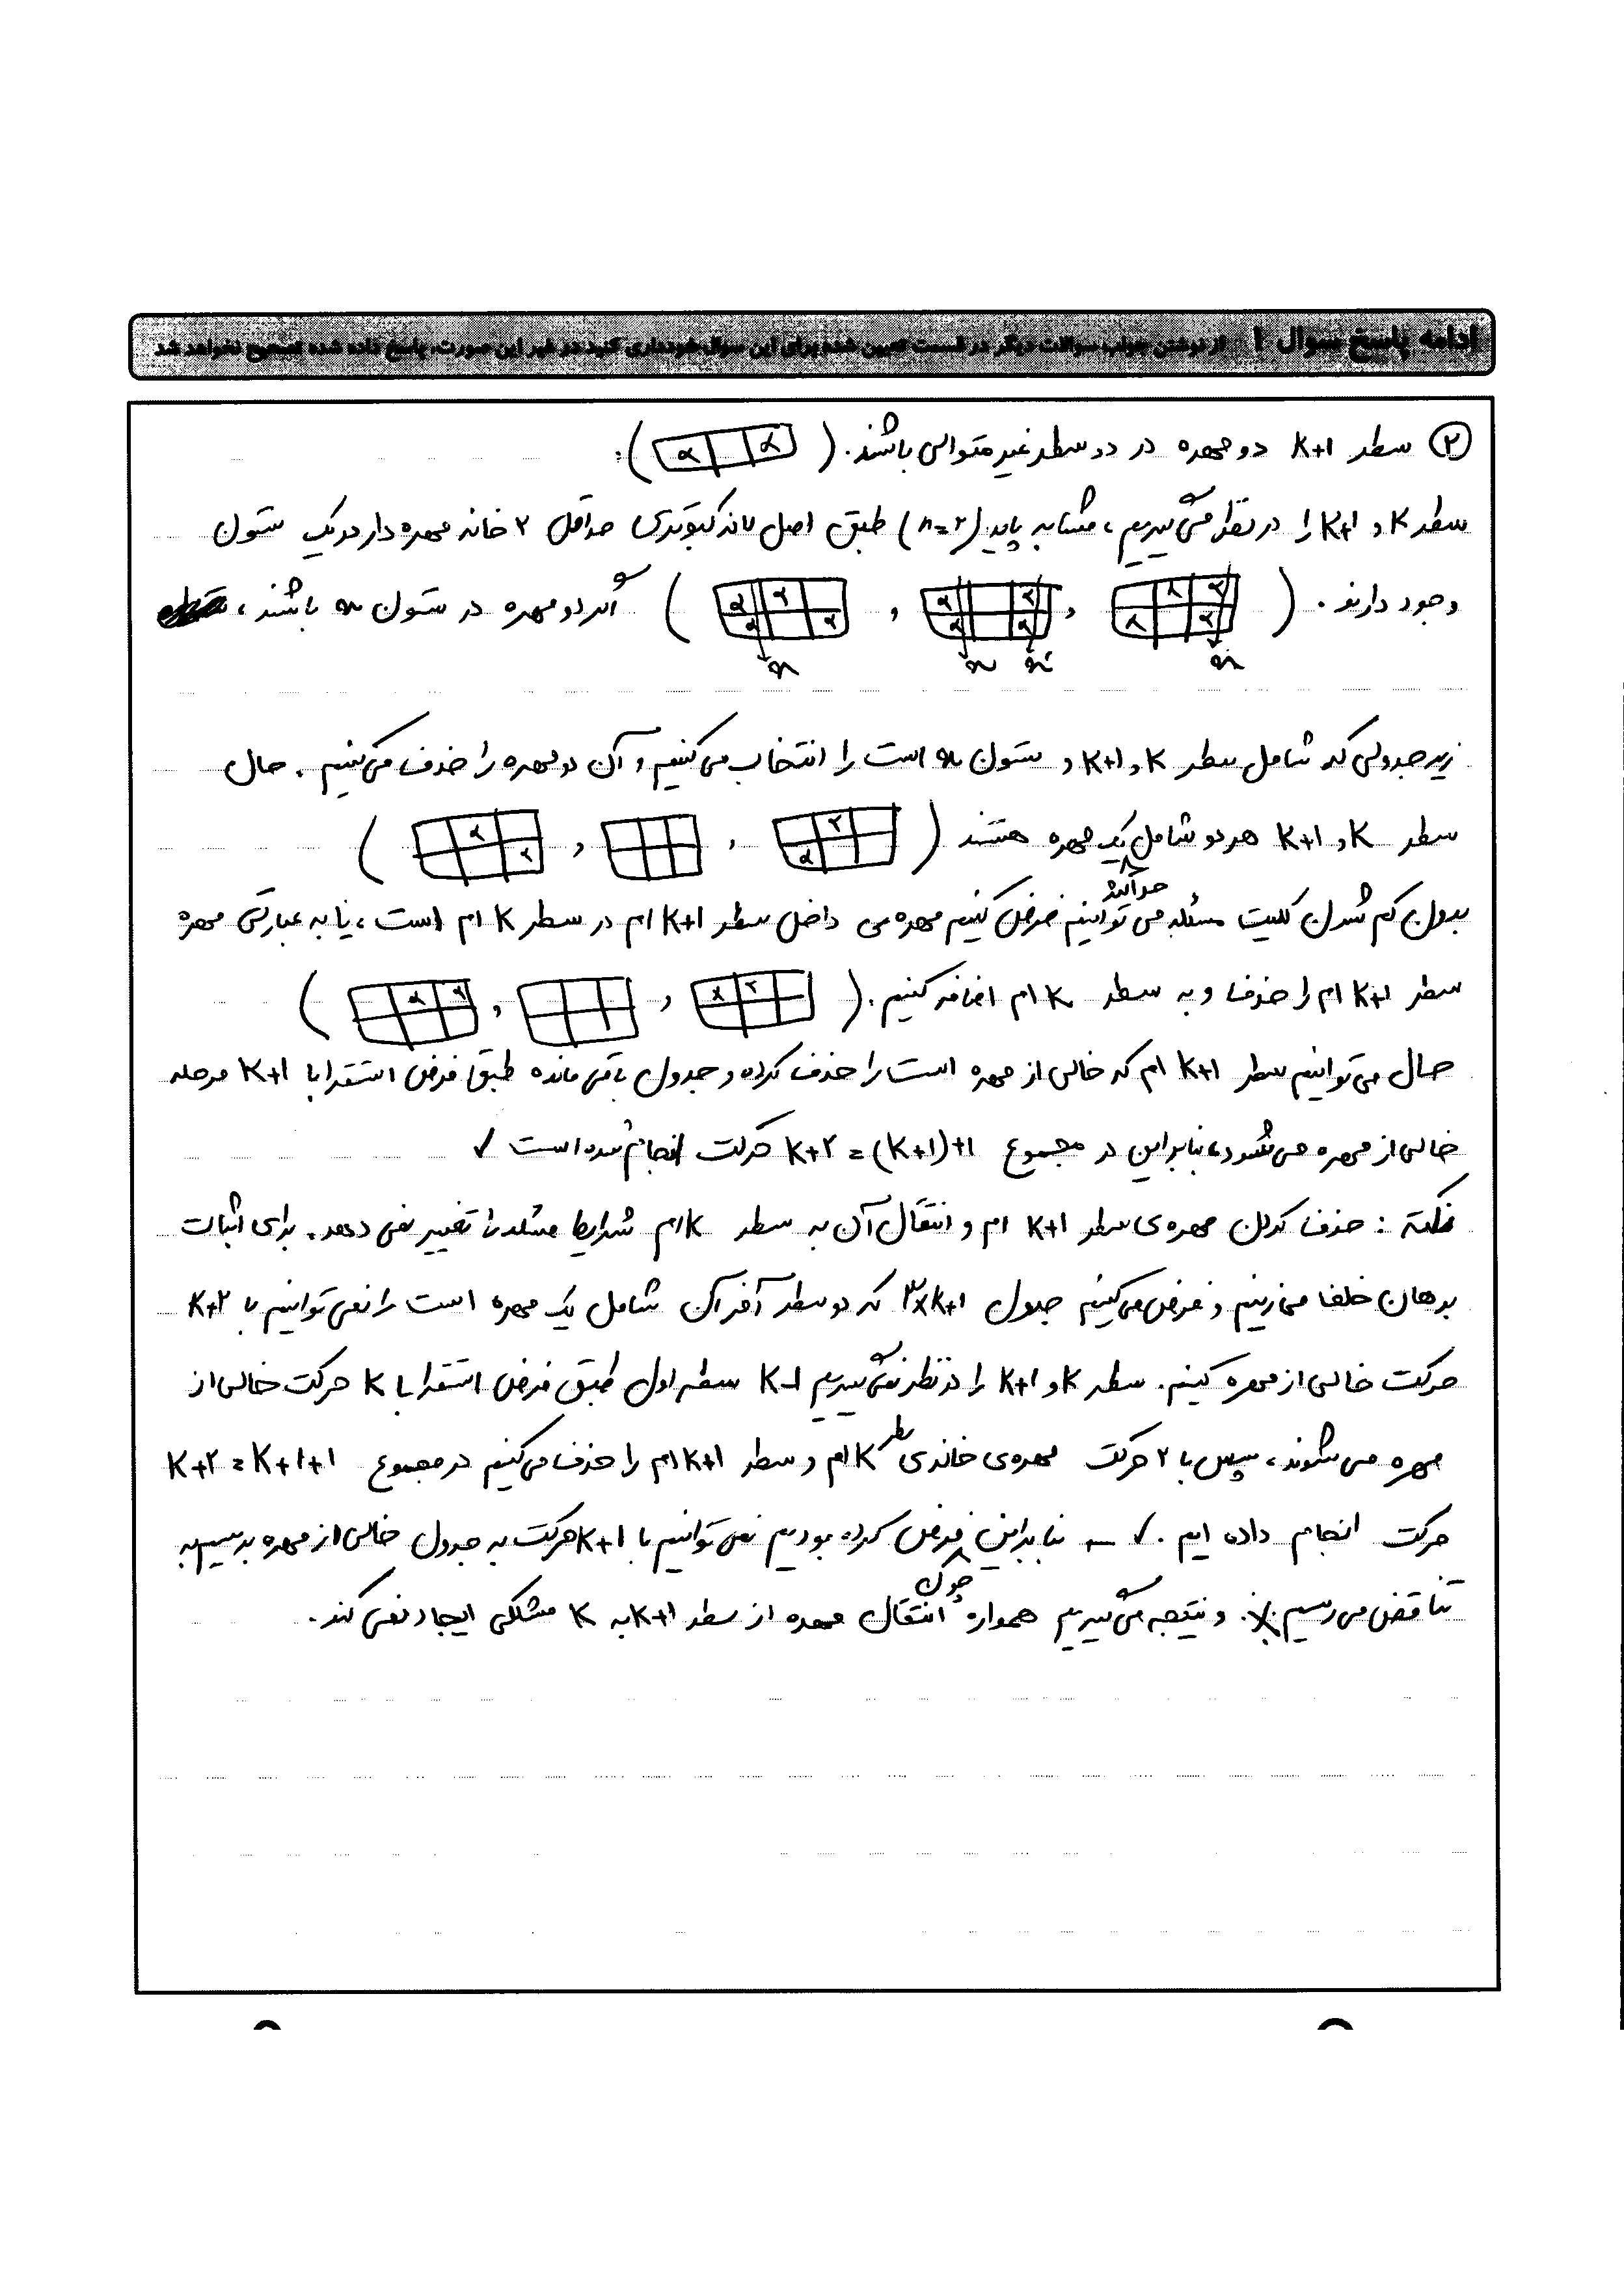 ادامه پاسخ سوال ۱ از نوشتن جواب سوالات دیگر در قسمت تعیین شده برای این سوال خودداری کنید در غیر این صورت، پاسخ داده شده تصحیح نخواهد شد
② سطر K+1 دو مهره در دو سطر غیر متوالی باشند. ( ):
سطر K و K+1 را در نظر می‌گیریم، مشابه پایه (n=2) طبق اصل لانه کبوتری حداقل ۲ خانه مهره دار در یک ستون
وجود دارند. ( , , ) اگر دو مهره در ستون باشند،
زیر جدولی که شامل سطر K و K+1 و ستون است را انتخاب می‌کنیم و آن دو مهره را حذف می‌کنیم. حال
سطر K و K+1 هر دو شامل یک مهره هستند ( , , )
حداکثر
بدون کم شدن کلیت مسئله می توانیم فرض کنیم مهره ی داخل سطر K+1 ام در سطر K ام است، یا به عبارتی مهره
سطر K+1 ام را حذف و به سطر K ام اضافه کنیم. ( , , )
حال می‌توانیم سطر K+1 ام که خالی از مهره است را حذف کرده و جدول باقی مانده طبق فرض استقرا با K+1 مرحله
خالی از مهره می‌شود، بنابراین در مجموع K+۲ = (K+1)+1 حرکت انجام شده است ✓
نکته : حذف کردن مهره‌ی سطر K+1 ام و انتقال آن به سطر K ام شرایط مسئله را تغییر نمی دهد. برای اثبات
برهان خلف می‌زنیم و فرض می‌کنیم جدول ۳×K+1 که دو سطر آخر آن شامل یک مهره است را نمی توانیم با K+۲
حرکت خالی از مهره کنیم. سطر K و K+1 را در نظر نمی‌گیریم K-1 سطر اول طبق فرض استقرا با K حرکت خالی از
مهره می‌شوند، سپس با ۲ حرکت مهره‌ی خانه‌ی سطر K ام و سطر K+1 ام را حذف می‌کنیم در مجموع K+۲ = K+1+1
حرکت انجام داده ایم. ✓ بنابراین فرض کرده بودیم نمی توانیم با K+1 حرکت به جدول خالی از مهره برسیم به
چون
تناقض می رسیم. و نتیجه می‌گیریم همواره انتقال مهره از سطر K+1 به K مشکلی ایجاد نمی کند.